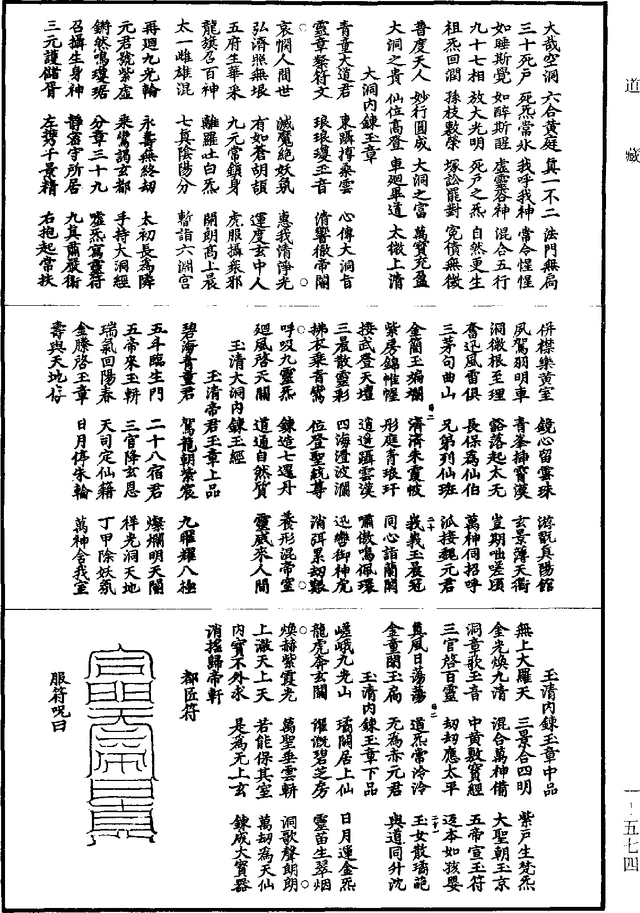 道藏
大哉空洞 六合黃庭 真一不二 法門無局
三十死戶 死炁常冰 我呼我神 常令惺惺
如睡斯覺 如醉斯醒 虛靈谷神 混合五行
九十七相 放大光明 死戶之炁 自然更生
祖炁回潤 孫枝敷榮 塚訟罷對 冤債無徵
普度天人 妙行圓成 大洞之富 萬寶充盈
大洞之貴 仙位高登 車迴畢道 太微上清
大洞內鍊玉章
青童大道君 東躋摶桑雲 心傳大洞旨
靈章榮符文 琅琅瓊玉音 清響徹帝閽
哀憫人間世 滅魔絕妖氛 惠我清淨光
弘濟照無垠 有如蒼胡頡 運度玄中人
五府生華采 九元常鎮身 虎服攝衆邪
龍旗召百神 離羅吐白炁 開朗高上晨
太一雌雄混 七真陰陽分 暫詣六淵宮
再迴九光輪 永壽無終劫 太初長為隣
元君號紫虛 乘鸞謁玄都 手持大洞經
鏘然鳴瓊琚 分章三十九 噓炁寫靈符
召攝生身神 靜密守所居 九真肅嚴衛
三元護儲胥 左攜千景精 右抱起常扶
併襟樂黃室 鏡心留雲珠 游翫真陽館
夙駕弱明車 青峯掃霄漢 玄景薄天衢
洞微根至理 豁落起太无 豈期咄嗟頃
奮迅風雷俱 長保為仙伯 萬神伺招呼
三茅句曲山 兄弟列仙班 派接魏元君
金簡玉編斕 濟濟朱霞帔 峩峩玉晨冠
紫房錦帷幄 彤庭青琅玕 同心詣蘭闕
接武登天壇 逍遊躡雲漢 嘯傲鳴佩環
三晨散靈彩 四海澄波瀾 迅轡御神虎
拂衣乘青鸞 位登聖統尊 消弭累劫艱
呼吸九靈炁 鍊造七還丹 養形混帝室
迴風啓元關 道通自然質 靈感來人間
玉清大洞內鍊玉經
玉清帝君玉章上品
碧海青童君 駕龍朝紫宸 九曜耀八極
五斗臨生門 二十八宿君 燦爛明天閽
五帝來玉軿 三官降玄恩 祥光洞天地
瑞氣回陽春 天司定仙籍 丁甲除妖氛
金縢啓玉章 日月停朱輪 萬神舍我室
壽與天地存
玉清內鍊玉章中品
無上大羅天 三景合四明 紫戶生梵炁
金光煥九清 混合萬神備 大聖朝玉京
洞章歌玉音 中黃敷寶經 五帝宣玉符
三官啓百靈 劫劫應太平 返本如孩嬰
真風日蕩蕩 道炁常泠泠 玉女散璚葩
金童閉玉扃 无為赤元君 與道同升沈
玉清內鍊玉章下品
嵯峨九光山 璚關居上仙 日月運金炁
龍虎奔玄關 灌溉碧芝房 靈苗生翠烟
煥赫紫霞光 萬聖垂雲軿 洞歌聲朗朗
上澈天上天 若能保其室 萬劫為天仙
內寶不外求 是為无上玄 鍊成大寶器
消搖歸帝軒
都匠符
服符呪曰
一·五七四